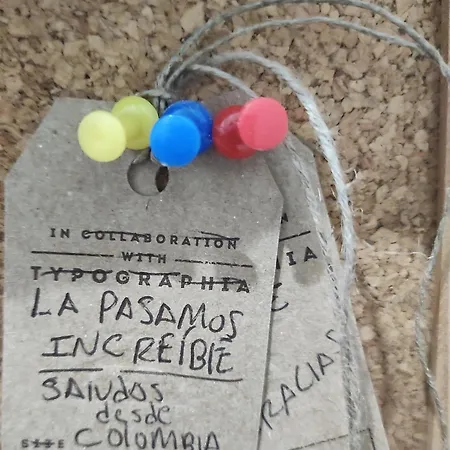 IN COLLABORATION
WITH
TYPOGRAPHIA
LA PASAMOS
INCREÍBlE
SAluDOS
desde
COlOMBIA
IA
RACIAS